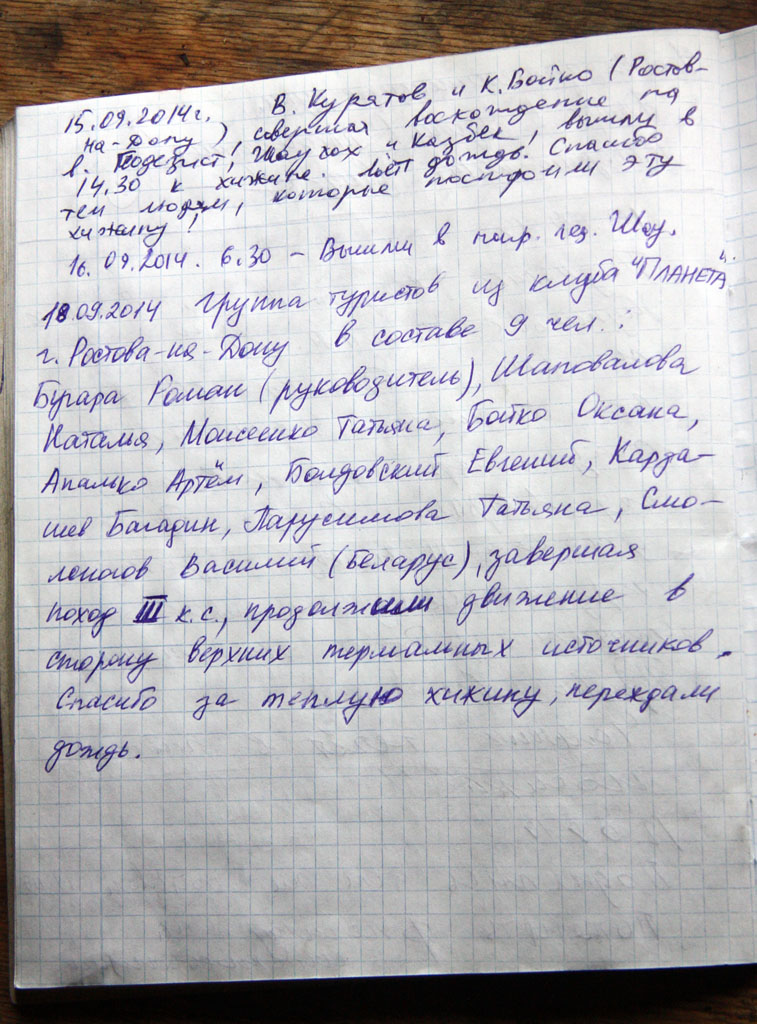 15.09.2014г. В. Курятов и К. Бойко (Ростов-
на-Дону), совершая восхождение на
в. Шаухох и Казбек, вышли в
14.30 к хижине. Льёт дождь. Спасибо
тем людям, которые построили эту
хижину!
16.09.2014. 6.30 – Вышли в напр. Шау.
18.09.2014 Группа туристов из клуба "ПЛАНЕТА"
г. Ростова-на-Дону в составе 9 чел.:
Бугара Роман (руководитель), Шаповалова
Наталья, Моисеенко Татьяна, Бойко Оксана,
Апалько Артём, Болдовский Евгений, Карда-
шев Багадин, Парусимова Татьяна, Смо-
леногов Василий (Беларус), завершая
поход III к.с., продолжили движение в
сторону верхних термальных источников.
Спасибо за теплую хижину, переждали
дождь.